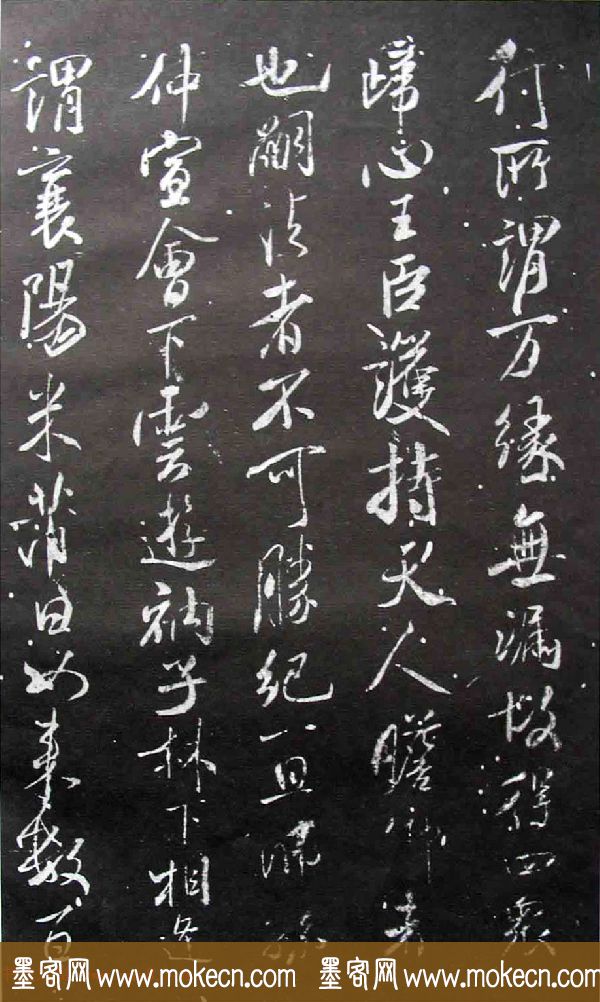 行所謂万緣無漏故得四衆
歸心王臣護持天人瞻仰者
也嗣法者不可勝紀一旦
仲宣會下雲遊衲子林下相逢
謂襄陽米芾曰如來教百
墨客网 www.mokecn.com 墨客网 www.mokecn.com